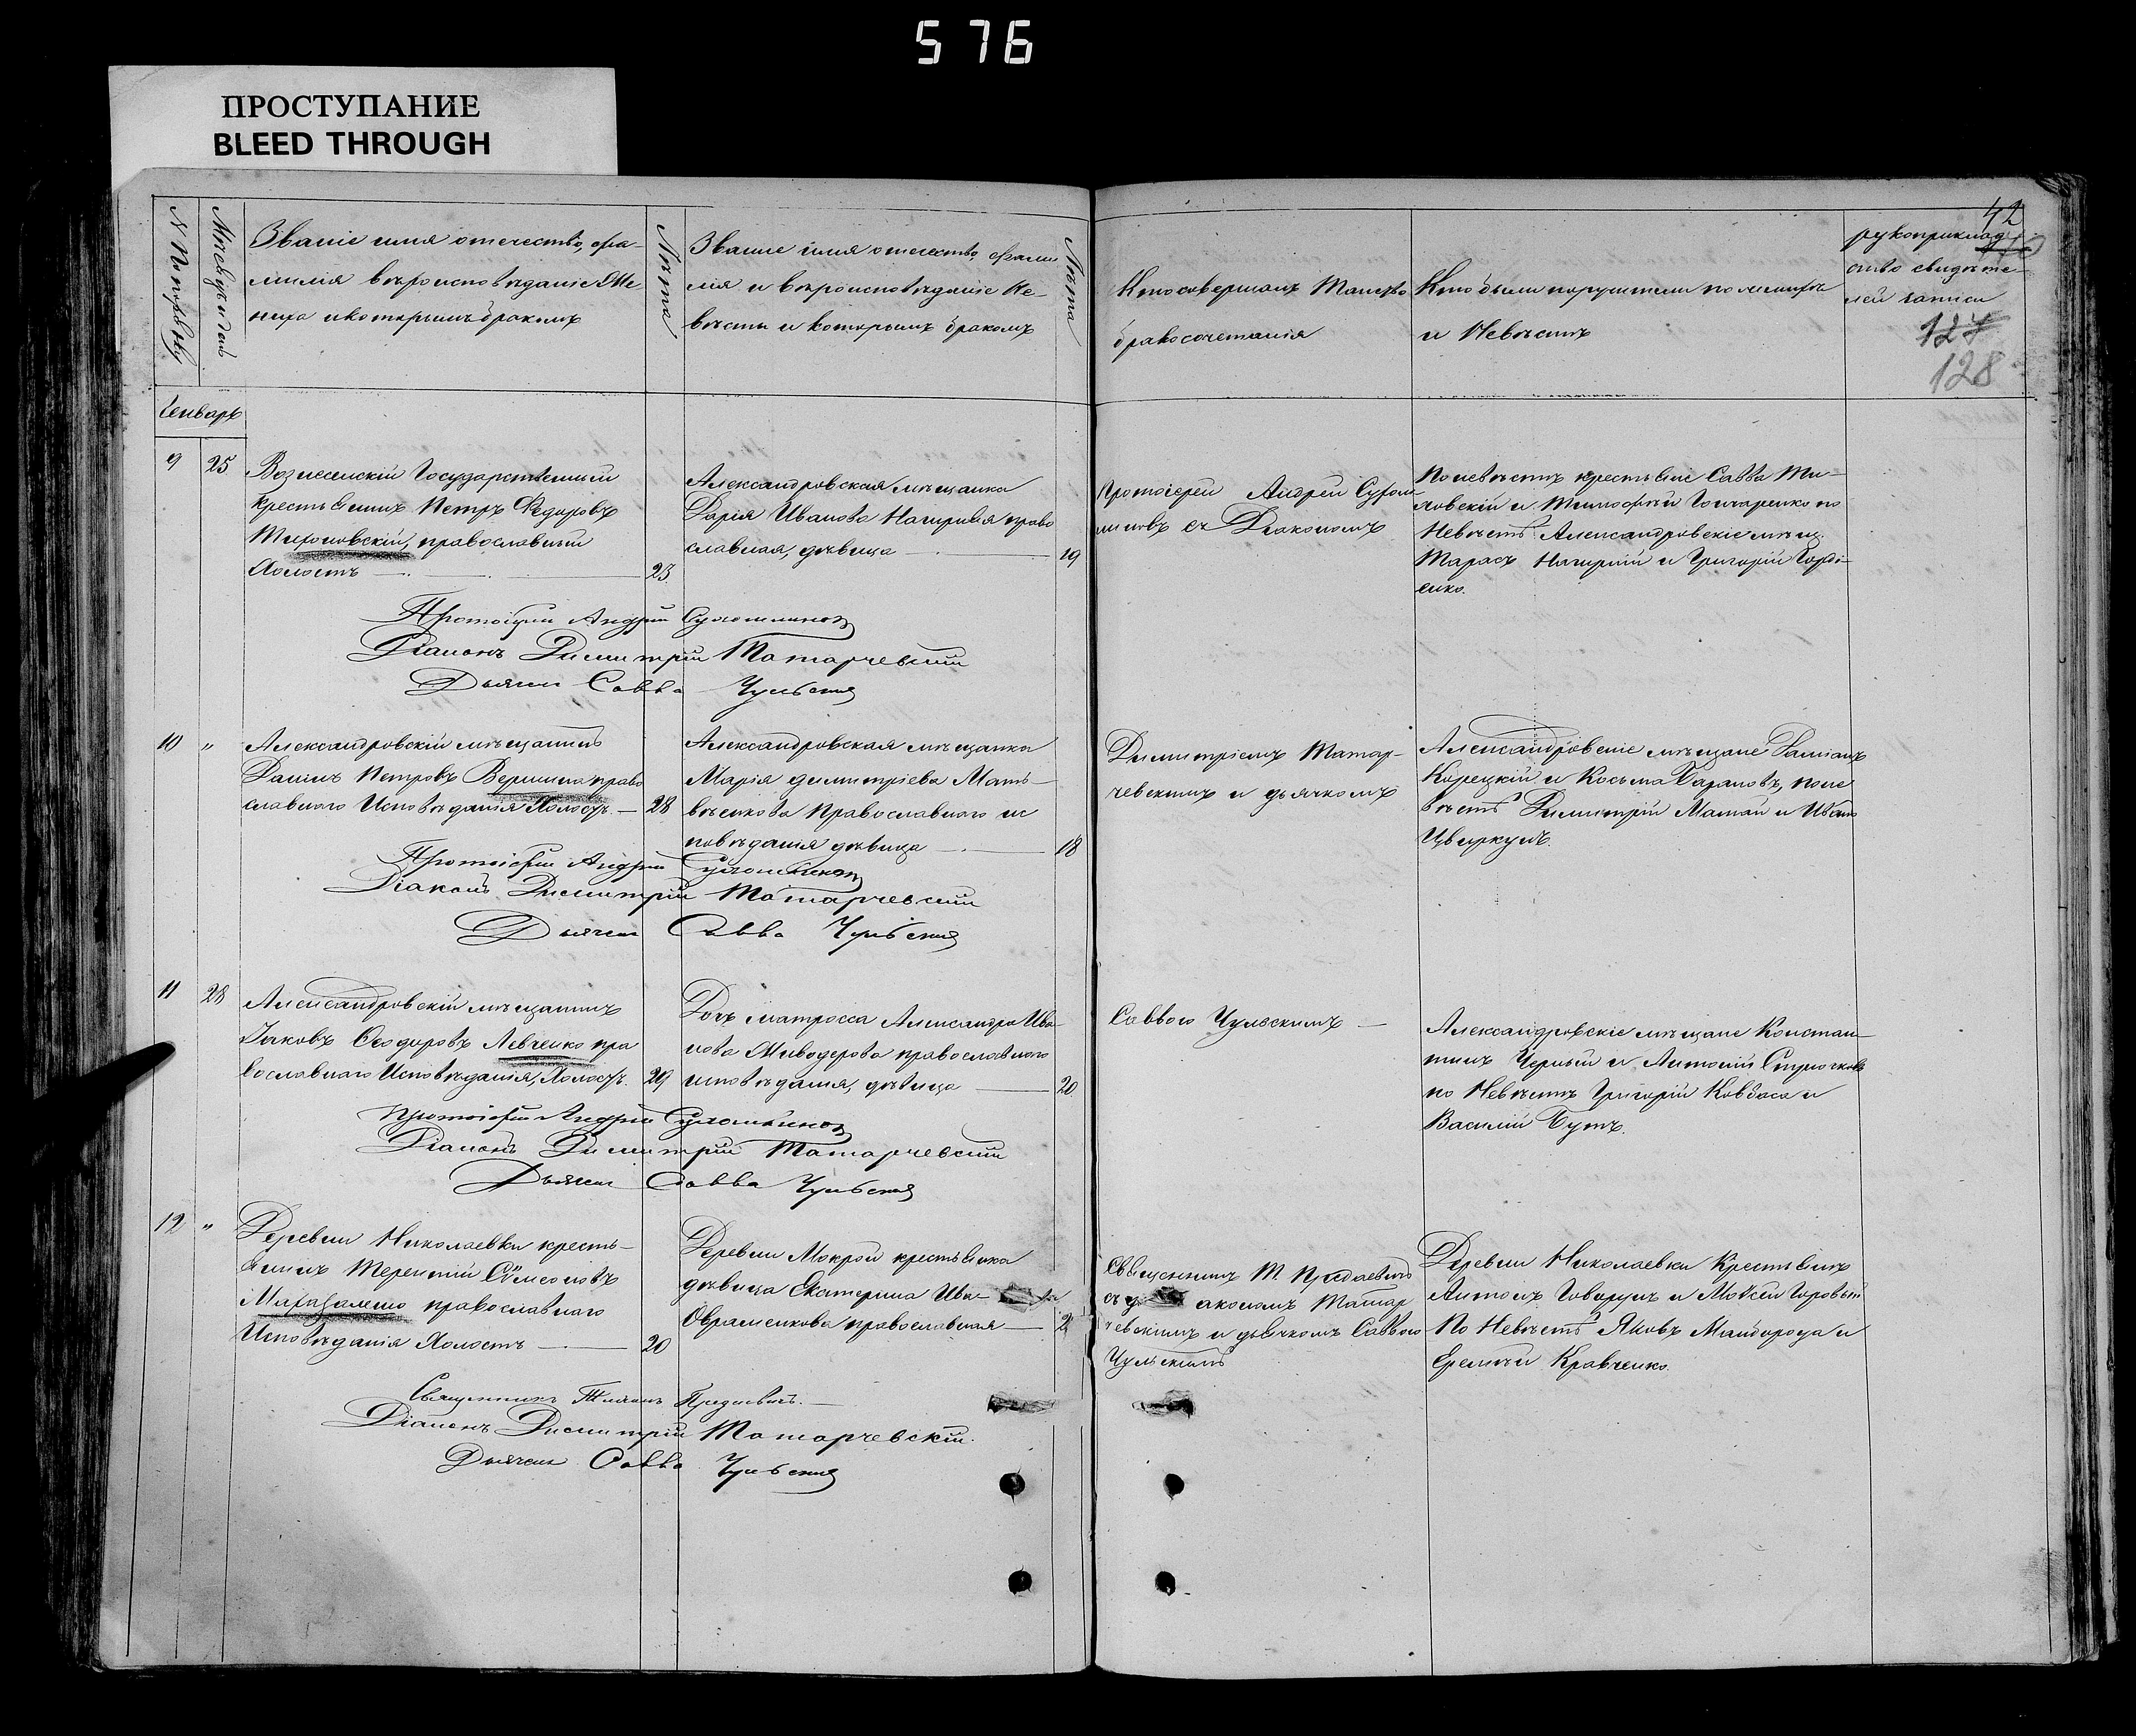 576
ПРОСТУПАНИЕ
BLEED THROUGH
42
№ По порядку
Мѣсяцъ и день
Званіе имя отечество, фа-
милія вѣроисповѣданіе Же-
ниха и которымъ бракомъ
Лѣта
Званіе имя отечество, фами
лія и вѣроисповѣданіе Не-
вѣсты и которымъ бракомъ
Лѣта
Кто совершалъ Таинство
бракосочетанія
Кто были поручители по женихѣ
и Невѣстѣ
рукоприклад
ство свидѣте-
лей записи
127
128
Генварь
9 25
Вознесенскій Государственный
крестьянинъ Петръ Федоровъ
православный
Холостъ 23
Александровская мѣщанка
Дарія Иванова Нагирная право
славная, дѣвица 19
Протоіерей Андрей
съ Діакономъ
По невѣстѣ крестьяне Савва Ти-
и Тимофей Гончаренко по
Невѣстѣ Александровскіе мѣщ.
Тарасъ Нагирній и Григорій Горді-
енко.
Протоіерей Андрей
Діаконъ Димитрій Татарчевскій
Дьячекъ Савва Чульскій
10 "
Александровскій мѣщанинъ
Даніилъ Петровъ Вершина право
славнаго Исповѣданія Холостъ. 28
Александровская мѣщанка
Марія димитріева Мать-
вѣенкова Православнаго ис
повѣданія дѣвица 18
Димитріемъ Татар-
чевскимъ и дьячкомъ
Александровскіе мѣщане Даміанъ
Корецкій и Косьма Барановъ, по не
вѣстѣ Димитрій Мамай и Иванъ
Цвиркунъ.
Протоіерей Андрей
Діаконъ Димитрій Татарчевскій
Дьячекъ Савва Чульскій
11 28
Александровскій мѣщанинъ
Іаковъ Ѳеодоровъ Левченко пра
вославнаго Исповѣданія, Холостъ. 29
Дочь матросса Александра Ива-
нова Живодерова православнаго
исповѣданія, дѣвица 20
Саввою Чульскимъ
Александровскіе мѣщане Констан-
тинъ Черный и Антоній
по Невѣстѣ Григорій Ковбаса и
Василій Бутъ.
Протоіерей Андрей
Діаконъ Димитрій Татарчевскій
Дьячекъ Савва Чульскій
12 "
Деревни Николаевки кресть-
янинъ Терентій Сѵмеоновъ
православнаго
Исповѣданія Холостъ 20
Деревни Мокрой крестьянка
дѣвица Екатерина Ива-
Авраменкова православная 2
Священникъ Т.
съ діакономъ Татар
чевскимъ и дьячкомъ Саввою
Чульскимъ
Деревни Николаевки Крестьяне
Антонъ Говорунъ и Моѵсей Горовый
По Невѣстѣ Яковъ Майборода и
Еремѣй Кравченко.
Священникъ
Діаконъ Димитрій Татарчевскій.
Дьячекъ Савва Чульскій